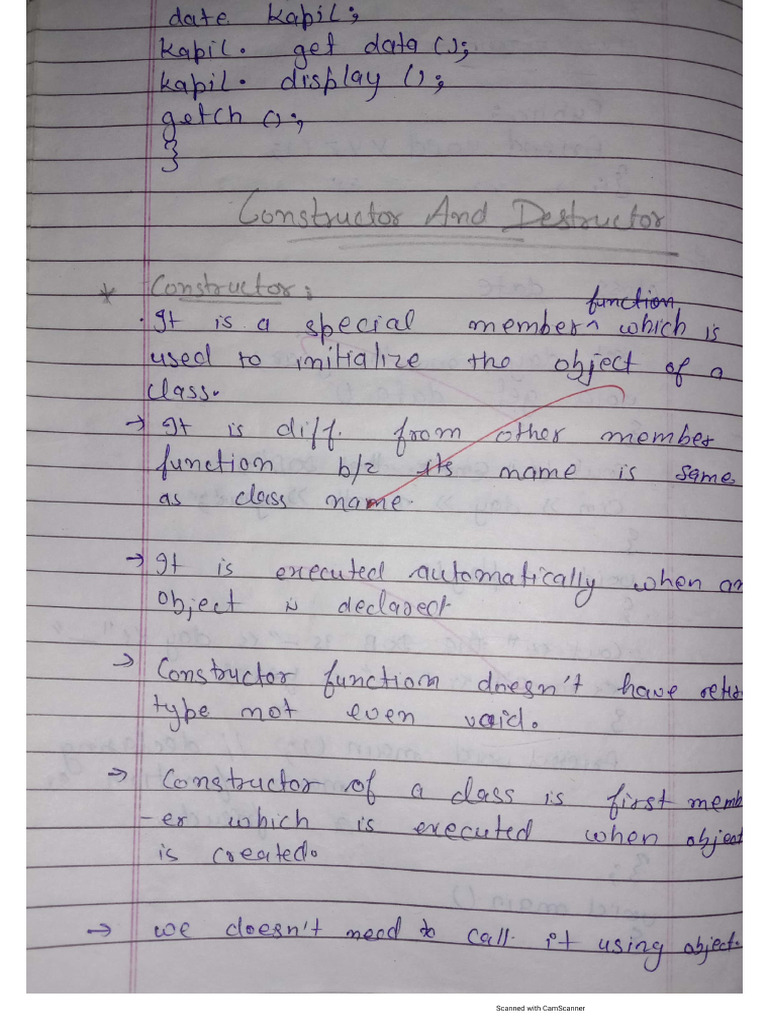 date kapil;
kapil. get data ();
kapil. display ();
getch ();
}
Constructor And Destructor
* Constructor:
function
. It is a special member ^ which is
used to initialize the object of a
class.
→ It is diff. from other member
function b/z its name is same
as class name.
→ It is executed automatically when an
object is declared
→ Constructor function doesn't have retu
type not even void.
→ Constructor of a class is first memb
-er which is executed when object
is created.
→ we doesn't need to call it using object.
Scanned with CamScanner